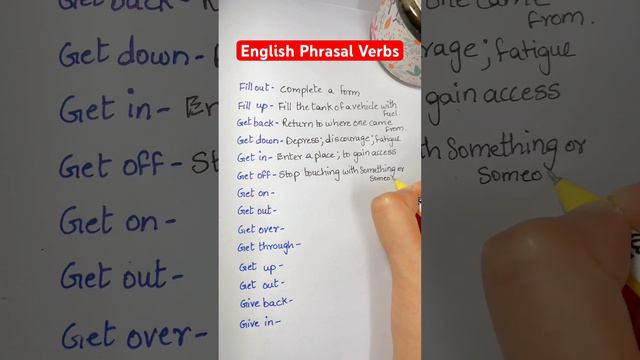 English Phrasal Verbs
Fill out - Complete a form
Fill up - Fill the tank of a vehicle with
fuel.
Get back - Return to where one came
from.
Get down - Depress; discourage; fatigue
Get in - Enter a place; to gain access
Get off - Stop touching with Something or
Someo
Get on -
Get out -
Get over -
Get through -
Get up -
Get out -
Give back -
Give in -
Get down -
Get in - En
Get off - St
Get on -
Get out -
Get over -
one came
from.
rage; fatigue
gain access
th Something or
Someo